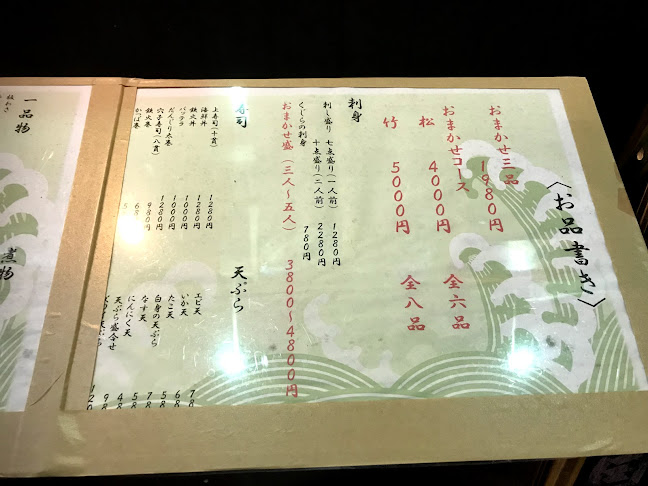 〈お品書き〉
おまかせ三品 1980円
おまかせコース
松 4000円 全六品
竹 5000円 全八品
刺身
刺し盛り 七点盛り(一人前) 1280円
十点盛り(二人前) 2280円
くじらの刺身 780円
おまかせ盛(三人〜五人) 3800〜4800円
寿司
上寿司(十貫) 1280円
海鮮丼 1280円
鉄火丼 1000円
バッテラ 1000円
だんじり太巻 1280円
穴子寿司(八貫) 980円
鉄火巻 68
かっぱ巻 5
天ぷら
エビ天 78
いか天 68
たこ天 58
白身の天ぷら 78
なす天 58
にんにく天 48
天ぷら盛合せ 98
天ぷら 120
一品物
板わさ
煮物